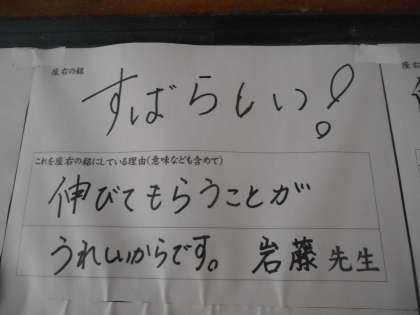 座右の銘
すばらしい!
これを座右の銘にしている理由(意味なども含めて)
伸びてもらうことが
うれしいからです。 岩藤先生